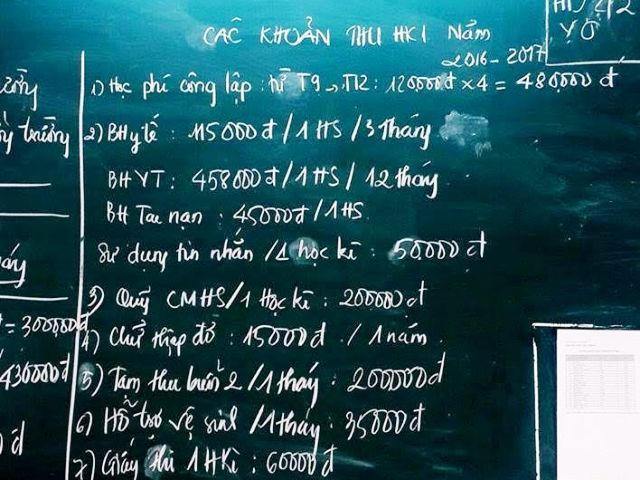 CÁC KHOẢN THU HKI Năm
2016-2017
1) Học phí công lập : từ T9 → T12 : 120000đ x 4 = 480,000 đ
2) BH y tế : 115000đ / 1 HS / 3 tháng
BHYT : 458000đ / 1 HS / 12 tháng
BH Tai nạn : 45000đ / 1HS
Sử dụng tin nhắn / 1 học kì : 50,000 đ
3) Quỹ CMHS / 1 Học kì : 200000 đ
4) Chữ thập đỏ : 15000đ / 1 năm
5) Tạm thu buổi 2 / 1 tháng : 200000đ
6) Hỗ trợ vệ sinh / 1 tháng : 35000đ
7) Giấy thi 1 HKì : 60000đ
trường
= 300,000đ
430000đ
đ